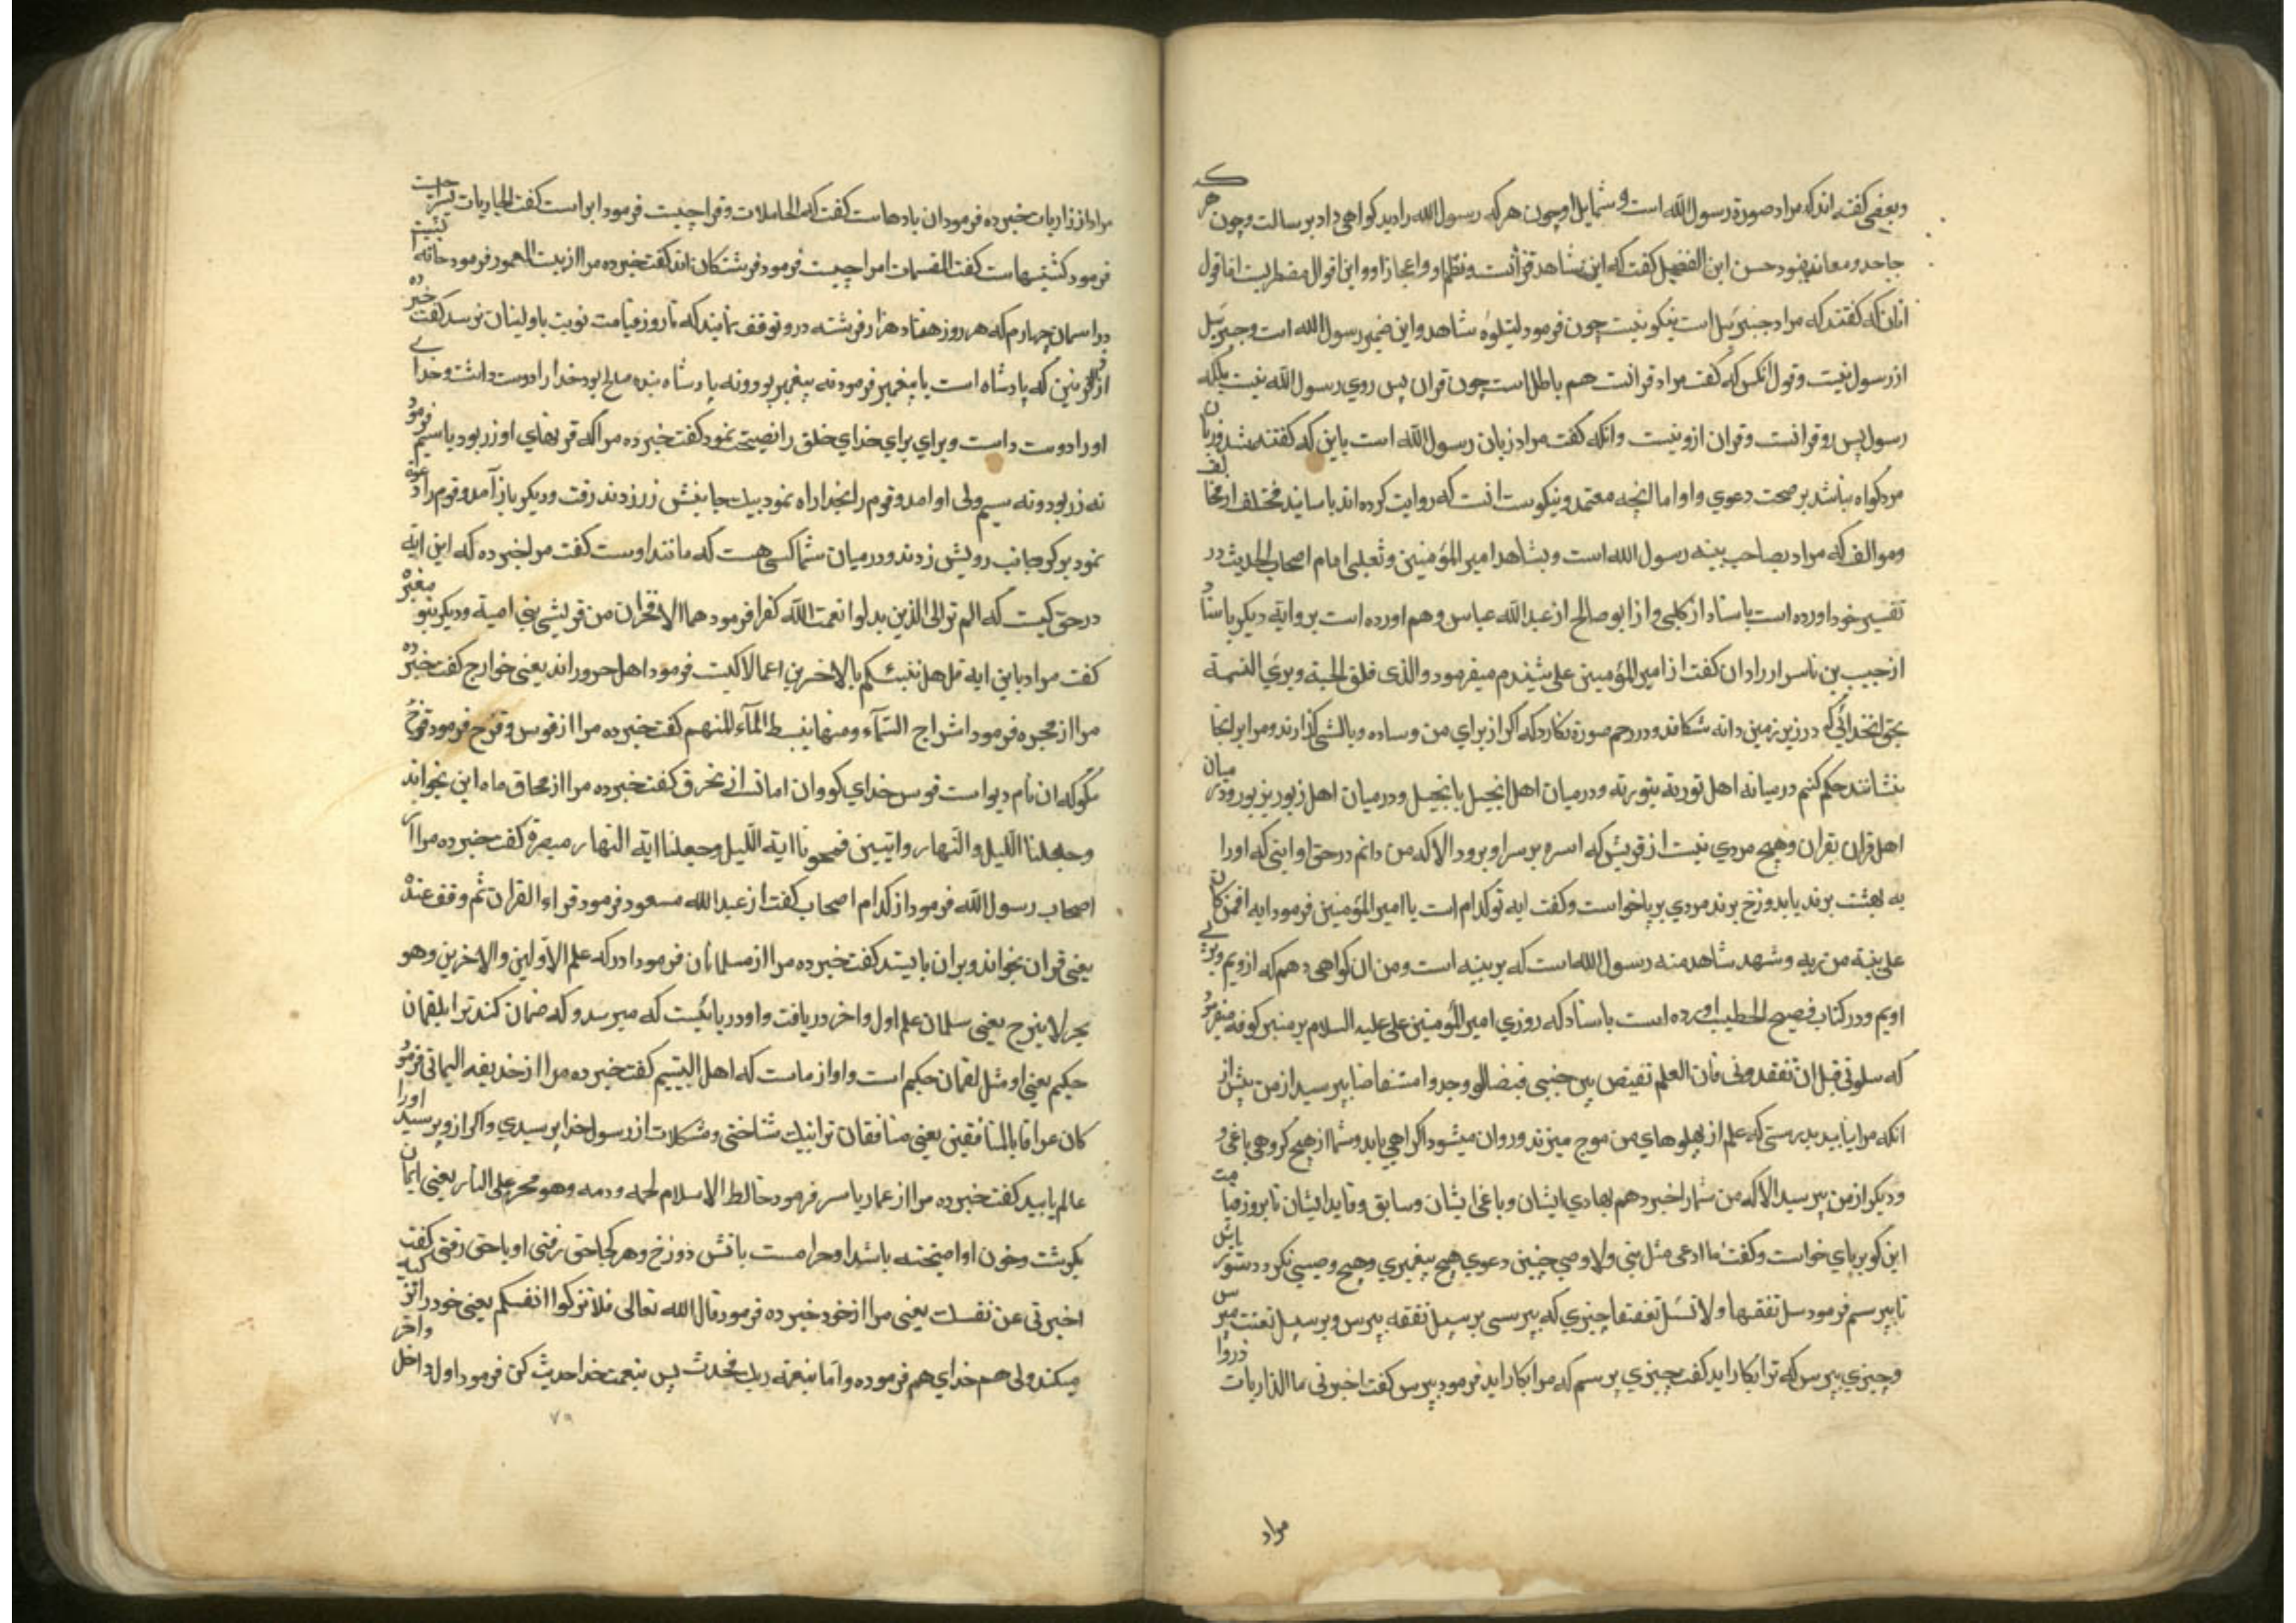 وبعضی کفته اندکه مراد صورة رسول الله است و شمایل او چون هرکه رسول الله را دید کواهی داد بر رسالت وچون هرکه
جاحد و معاند نبود حسن ابن الفضیل کفت که این شاهد قرآنست ونظم او و اعجاز او و این اقوال مضطربست اما قول
انان که کفتند که مراد جبرئیل است نیکو نیست چون فرمود لیتلوه شاهد و این ضمیر رسول الله است و جبرئیل
از رسول نیست و قول انکس که کفت مراد قرانست هم باطل است چون قران پس روی رسول الله نیست بلکه
رسول پس رو قرانست وقران ازو نیست وانکه کفت مراد زبان رسول الله است باین که کفته شد زبان
مرد کواه نباشد بر صحت دعوی واو اما انچه معتمد و نیکوست انست که روایت کرده اند باسانید مختلف از مخالف
وموالف که مراد بصاحب بینه رسول الله است و بشاهد امیر المؤمنین وثعلبی امام اصحاب الحدیث در
تفسیر خود اورده است باسناد از کلبی و از ابو صالح از عبد الله عباس وهم اورده است بروایة دیکر باسناد
از حبیب بن ناسر ار رادان کفت از امیر المؤمنین علی شنیدم میفرمود والذی فلق الحبة وبرئ النسمة
بحق انخدائی که در زیر زمین دانه شکافد ودر رحم صورة نکارد که اکر از برای من وساده وبالشی کذارند ومرا بر انجا
بنشانند حکم کنم درمیانه اهل توریة بتوریة ودرمیان اهل انجیل بانجیل ودرمیان اهل زبور بزبور ودرمیان
اهل قران بقران وهیچ مردی نیست از قریش که استره بر سر او برود الا که من دانم در حق او ایتی که اورا
به بهشت برند یا بدوزخ برند مردی برپاخواست وکفت ایه تو کدام است یا امیر المؤمنین فرمود ایه افمن کان
علی بینة من ربه وشهد شاهد منه رسول الله است که بر بینه است ومن ان کواهی دهم که ازویم وپی
اویم ودر کتاب فصیح الخطیب اورده است باسناد که روزی امیر المؤمنین علی علیه السلام بر منبر کوفه میفرمود
که سلونی قبل ان تفقدونی فان العلم تفیض بین جنبی فیضا لو وجدوا مستفاضا بپرسید از من پیش از
انکه مرا نیابید بدرستی که علم از پهلوهای من موج میزند و روان میشود اکر راهی یابد وشما از هیچ کروهی باغی و
ودیکر از من نپرسید الا که من شمارا خبر دهم بهادی ایشان وباغی ایشان وسابق وقاید ایشان تا بروز قیامت
ابن کو برپای خواست وکفت ما ادعی مثل نبی ولا وصی چنین دعوی هیچ پیغمبری وهیچ وصیی نکرد دستور باش
تا بپرسم فرمود سل تفقها ولا تسئل تعنتا چیزی که بپرسی بر سبیل تفقه بپرس وبر سبیل تعنت مپرس
وچیزی بپرس که ترا بکار اید کفت چیزی پرسم که مرا بکار اید فرمود بپرس کفت اخبرنی ما الذاریات ذروا
مراد
مراد از ذاریات خبر ده فرمود ان بادهاست کفت که الحاملات وقرا چیست فرمود ابر است کفت الجاریات یسرا چیست
فرمود کشتیهاست کفت المقسمات امرا چیست فرمود فرشتکان اند کفت خبر ده مرا از بیت المعمور فرمود خانه ئیست
در اسمان چهارم که هر روز هفتاد هزار فرشته درو توقف نمایند که تا روز قیامت نوبت باولینان نرسد کفت خبر ده
از ذوالقرنین که پادشاه است یا پیغمبر فرمود نه پیغمبر بود ونه پادشاه بنده صالح بود خدا را دوست داشت وخدای
اورا دوست داست وبرای برای خدای خلق را نصیحت نمود کفت خبر ده مرا که قرنهای او زر بود یا سیم فرمود
نه زر بود ونه سیم ولی او امد وقوم را بخدا راه نمود بیک جانبش زر زدند رفت ودیکر باز آمد وقوم را دعوة
نمود برکو جانب رویش زدند ودرمیان شما کسی هست که مانند اوست کفت مرا خبر ده که این ایه
در حق کیست که الم تر الی الذین بدلوا نعمت الله کفرا فرمود هما الافخران من قریش بنی امیة ودیکر بنو مغیره
کفت مراد باین ایه قل هل ننبئکم بالاخسرین اعمالا کیست فرمود اهل حروراند یعنی خوارج کفت خبر ده
مرا از مجره فرمود اشراج السمآء ومنها یبسط المآء المنهم کفت خبر ده مرا از قوس وقزح فرمود قزح
مکو که ان نام دیواست قوس خدای کو وان امانست از غرق کفت خبر ده مرا از محاق ماه این بخواند
وجعلنا اللیل والنهار وایتین فمحونا ایة اللیل وجعلنا ایة النهار مبصرة کفت خبر ده مرا از
اصحاب رسول الله فرمود از کدام اصحاب کفت از عبد الله مسعود فرمود قراء القران ثم وقف عنده
یعنی قران بخواند وبر ان بایستد کفت خبر ده مرا از مسلمانان فرمود ادرکه علم الاولین والاخرین وهو
بحر لا ینزح یعنی سلمان علم اول واخر دریافت واو دریائیست که میرسد وکه ضمان کند ترا بلقمان
حکیم یعنی او مثل لقمان حکیم است واو از ماست که اهل البیتیم کفت خبر ده مرا از حذیفه الیمانی فرمود
کان عرافا بالمنافقین یعنی منافقان ترا نیک شناختی ومشکلات از رسول خدا پرسیدی واکر ازو پرسید اورا
عالم یابید کفت خبر ده مرا از عمار یاسر فرمود خالط الاسلام لحمه ودمه وهو محرم علی النار یعنی ایمان
بکوشت وخون او امیخته باشد او حرامست باتش دوزخ وهر کجا حق رفتی او باحق رفتی کفت
اخبرنی عن نفسک یعنی مرا از خود خبر ده فرمود قال الله تعالی فلا تزکوا انفسکم یعنی خود را تزکیه
میکند ولی هم خدای هم فرموده واما بنعمة ربک فحدث پس بنعمت خدا حدیث کن فرمود اول داخل واخر
۷۹